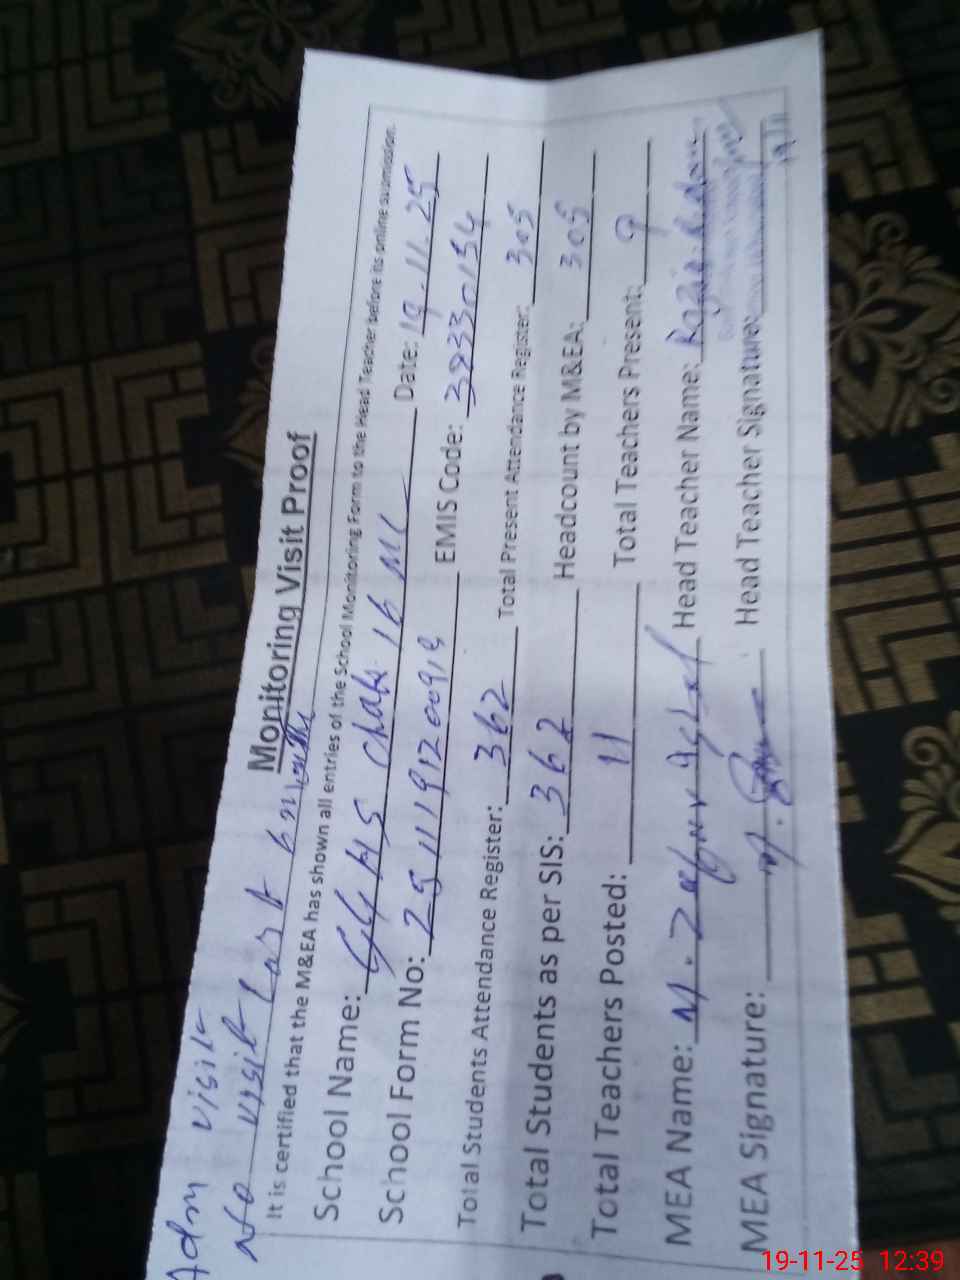 Adm visit
No visit last month
Monitoring Visit Proof
It is certified that the M&EA has shown all entries of the School Monitoring Form to the Head Teacher before its online submission.
School Name: GGHS Chak 16 ML Date: 19.11.25
School Form No: EMIS Code:
Total Students Attendance Register: 362 Total Present Attendance Register: 305
Total Students as per SIS: 362 Headcount by M&EA: 305
Total Teachers Posted: 11 Total Teachers Present: 9
MEA Name: M. Head Teacher Name: Razia
MEA Signature: Head Teacher Signature:
19-11-25 12:39